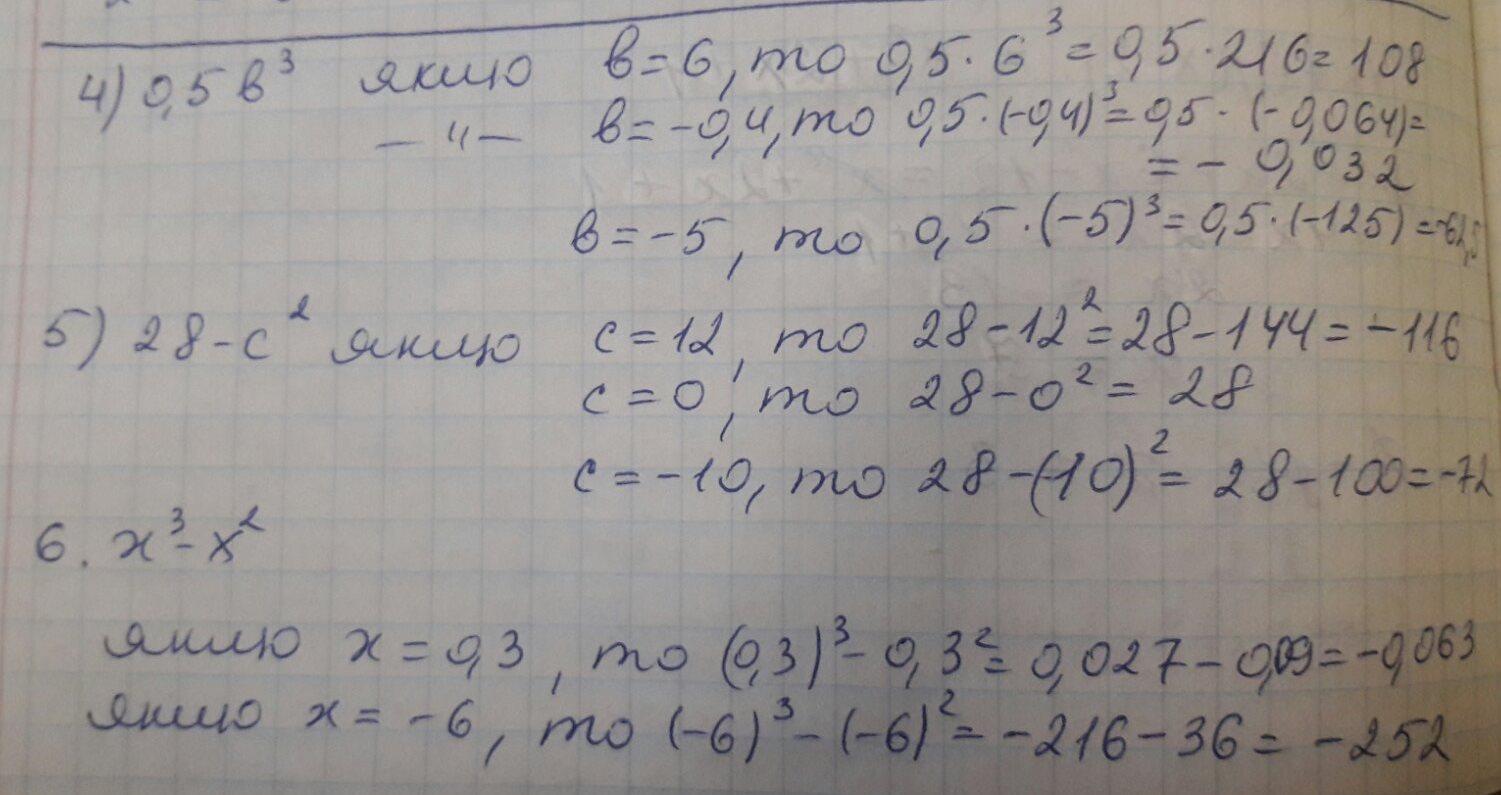 4) 0,5 в³ якщо в=6, то 0,5·6³=0,5·216=108
—"— в=-0,4, то 0,5·(-0,4)³=0,5·(-0,064)=
=-0,032
в=-5, то 0,5·(-5)³=0,5·(-125)=-62,5
5) 28-с² якщо с=12, то 28-12²=28-144=-116
с=0, то 28-0²=28
с=-10, то 28-(-10)²=28-100=-72
6. х³-х²
якщо х=0,3, то (0,3)³-0,3²=0,027-0,09=-0,063
якщо х=-6, то (-6)³-(-6)²=-216-36=-252